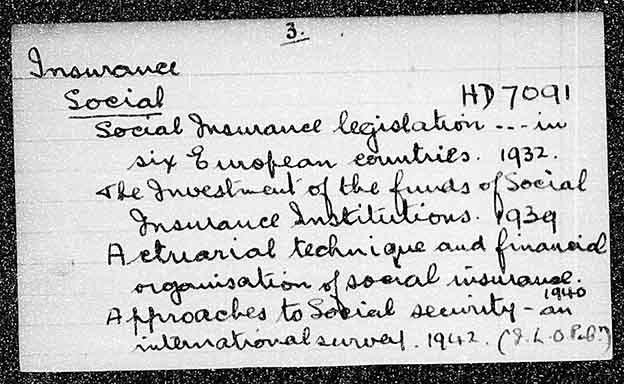 3.
Insurance
Social HD 7091
Social Insurance legislation --- in
six European countries. 1932.
The Investment of the funds of Social
Insurance Institutions. 1939
Actuarial technique and financial
organisation of social insurance.
1940
Approaches to Social security - an
international survey. 1942. (I.L.O Pub.)